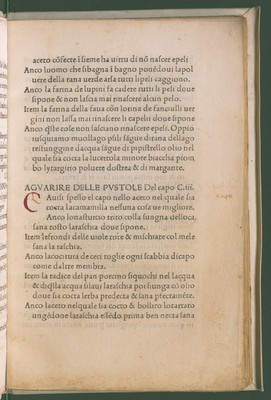 aceto cõfecte ĩsieme ha uirtu di nõ nascer epeli
Anco luomo che sibagna ĩ bagno ponẽdoui lapol
uere della rana uerde arsa tutti lipeli caggiono.
Anco la farina de lupini fa cadere tutti li peli doue
sipone & non lascia mai rinascere alcun pelo.
Item la farina della faua cõn lorina de fanciulli uer
gini non lassa mai rinascere li capelli doue sipone
Anco q̃ste cose non lasciano rinascere epeli. Oppio
iusquiamo mucillago psilii sãgue dirana dellago
restuggine dacqua sãgue di pipistrello olio nel
quale sia cocta la lucertola minore biaccha piom
bo lytargirio poluere dostrea & di margarite.
AGVARIRE DELLE PVSTOLE Del capo C.iii.
CAuisi spesso el capo nello aceto nel quale sia
cocta lacamamilla nessuna cosa ue migliore.
Anco lonasturtio trito colla sungna delloca,
sana tosto laraschia doue sipone.
Item lefrondi delle uiole trite & mischiate col mele
sana la raschia.
Anco lacocitura de ceci toglie ogni scabbia dicapo
come daltre membra.
Item la radice del pan porcino siquochi nel lacqua
& diq̃lla acqua silaui laraschia poi siunga cõ olio
doue sia cocta lerba predecta & sana pfectamẽte.
Anco laceto nelquale sia cotto & bollito lotartaro
ungẽdone laraschia essẽdo prima ben netta sana